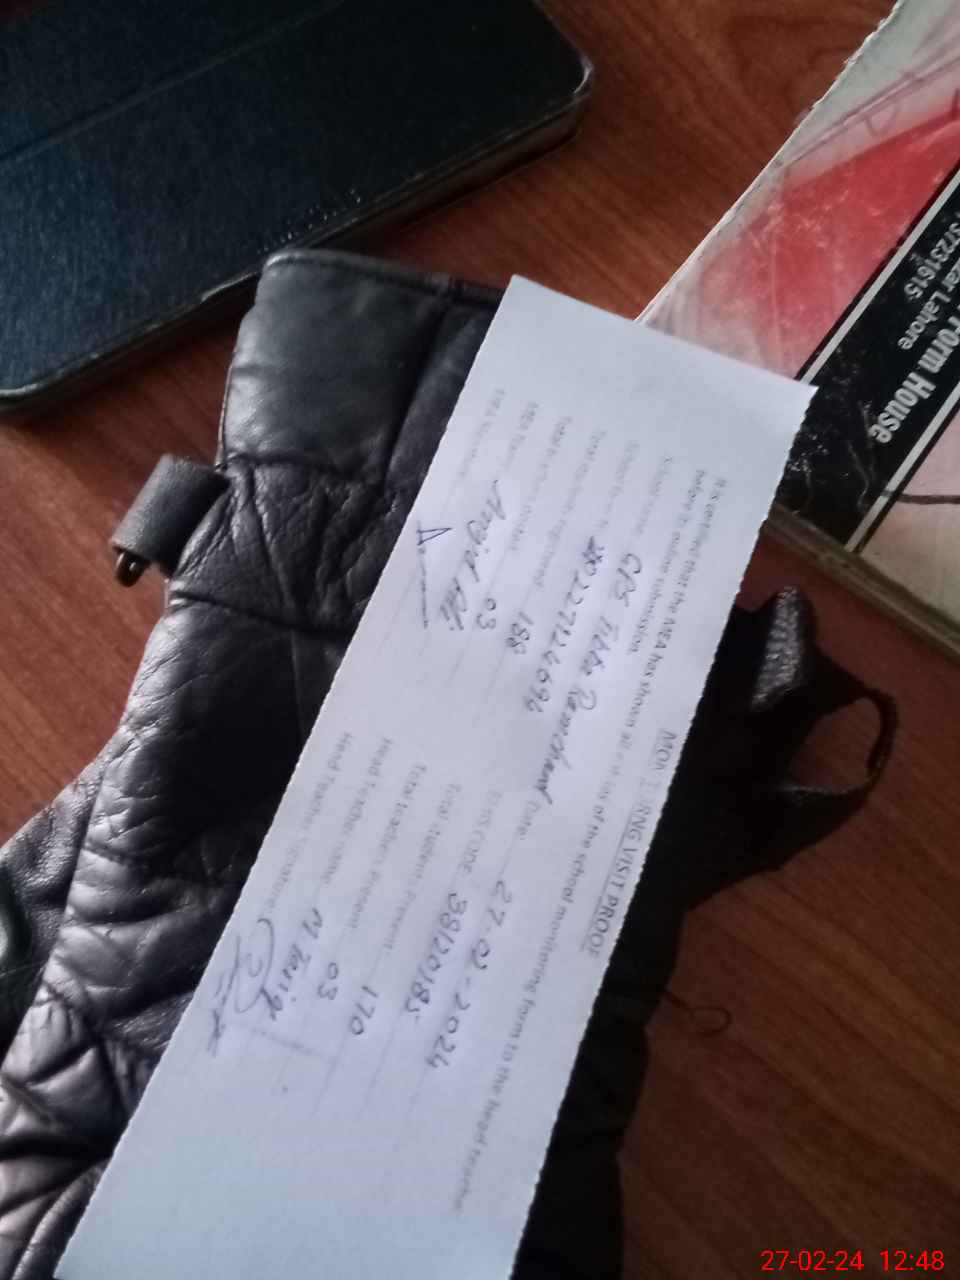 MONITORING VISIT PROOF
It is certified that the MEA has shown all entries of the school monitoring form to the head teacher
before its online submission.
School name: GPS Tibba Ramchand Date: 27-02-2024
EMIS CODE: 38120185
Total students registered: 188 Total students Present: 170
03 Total teachers Present 03
MEA Name Amjid Ali Head Teacher name M. Tariq
MEA Signature Head Teacher Signature
Form House
zar Lahore
37231615
27-02-24 12:48